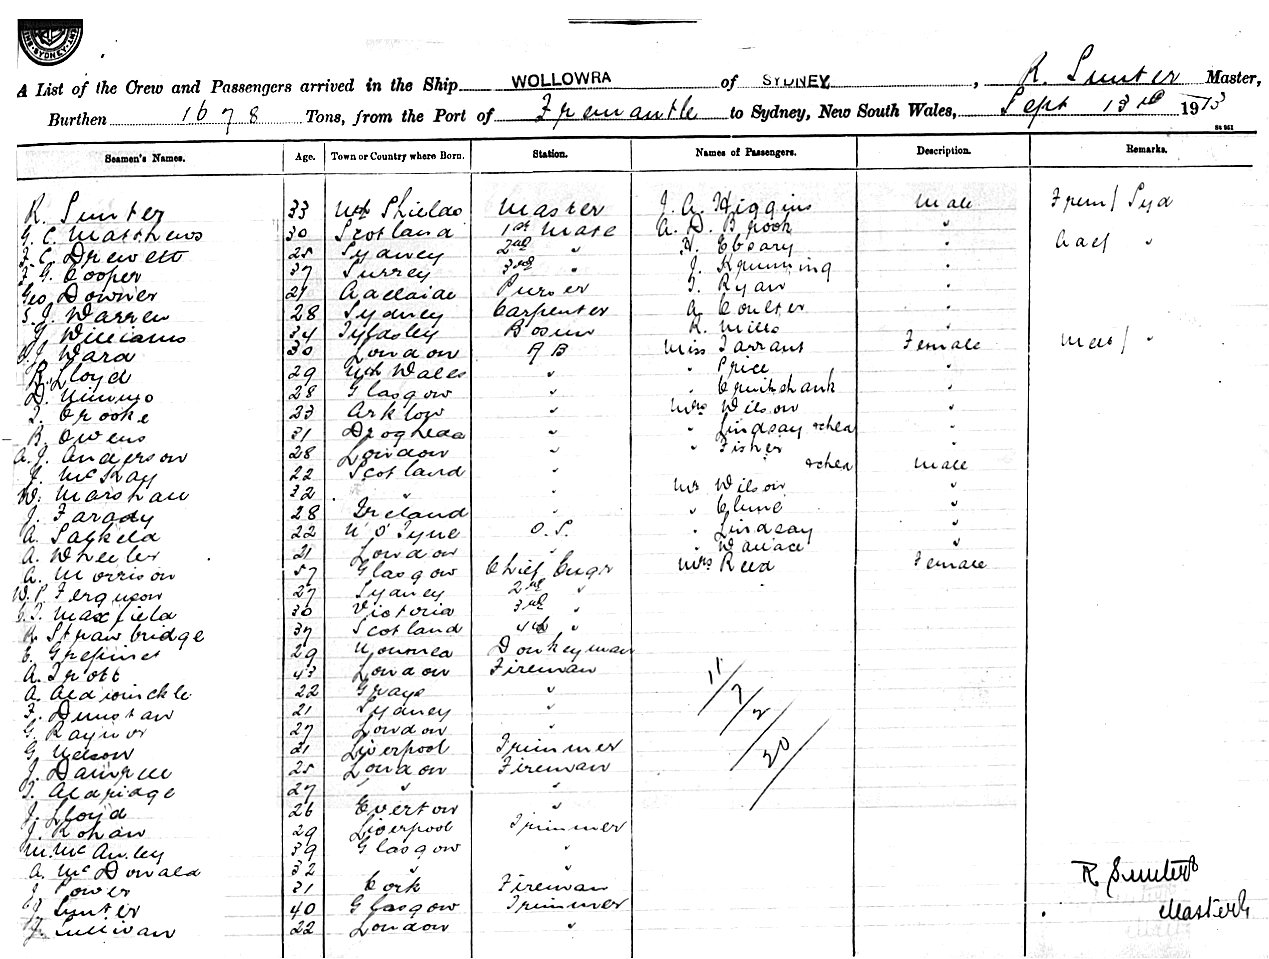 SYDNEY
A List of the Crew and Passengers arrived in the Ship WOLLOWRA of SYDNEY, R. Sunter Master,
Burthen 1678 Tons, from the Port of Fremantle to Sydney, New South Wales, Sept 13th 1913
Seamen's Names. Age. Town or Country where Born. Station. Names of Passengers. Description. Remarks.
R. Sunter 33 Nth Shields Master J. A. Higgins Male Frem/ Syd
G. C. Matthews 30 Scotland 1st Mate A. D. Brook "
F. C. Drewett 25 Sydney 2nd " H. Ebsary " Adel "
F. G. Cooper 37 Surrey 3rd " J. "
Geo Downer 21 Adelaide Purser T. Ryan "
S. J. Warren 28 Sydney Carpenter A. Coulter "
J. Williams 34 Tyldesley Bosun R. Mills "
J. Ward 30 London A B Miss Tarrant Female Mel/ "
R. Lloyd 29 Nth Wales " " Price "
D. Nimmo 28 Glasgow " " Cruikshank "
T. Crooke 23 Arklow " Mrs Wilson "
B. Owens 31 Drogheda " " Lindsay & chea "
A. J. Anderson 28 London " " Fisher "
J. McKay 22 Scotland " & chea Male
W. Marshall 32 " " Mr Wilson "
J. Farady 28 Ireland " " Clune "
A. Salkeld 22 N' O' Tyne O. S. " Lindsay "
A. Wheeler 21 London " " Wallace "
A. Morrison 57 Glasgow Chief Engr Mrs Reed Female
W. P. Ferguson 27 Sydney 2nd "
C. T. Maxfield 30 Victoria 3rd "
A. Strawbridge 37 Scotland 4th "
C. 29 Donkeyman
A. Trott 43 London Fireman
A. Aldwinckle 22 Grays "
F. Dunstan 21 Sydney "
G. Raynor 27 London "
G. Nelson 21 Liverpool Trimmer
J. 25 London Fireman
T. Aldridge 27 " "
J. Lloyd 26 Everton "
J. Rohan 29 Liverpool Trimmer
M. McAuley 39 Glasgow "
A. McDonald 32 " "
J. Power 31 Cork Fireman
J. Sunter 40 Glasgow Trimmer
J. Sullivan 22 London "
11/7/2/20
R Sunter
Master